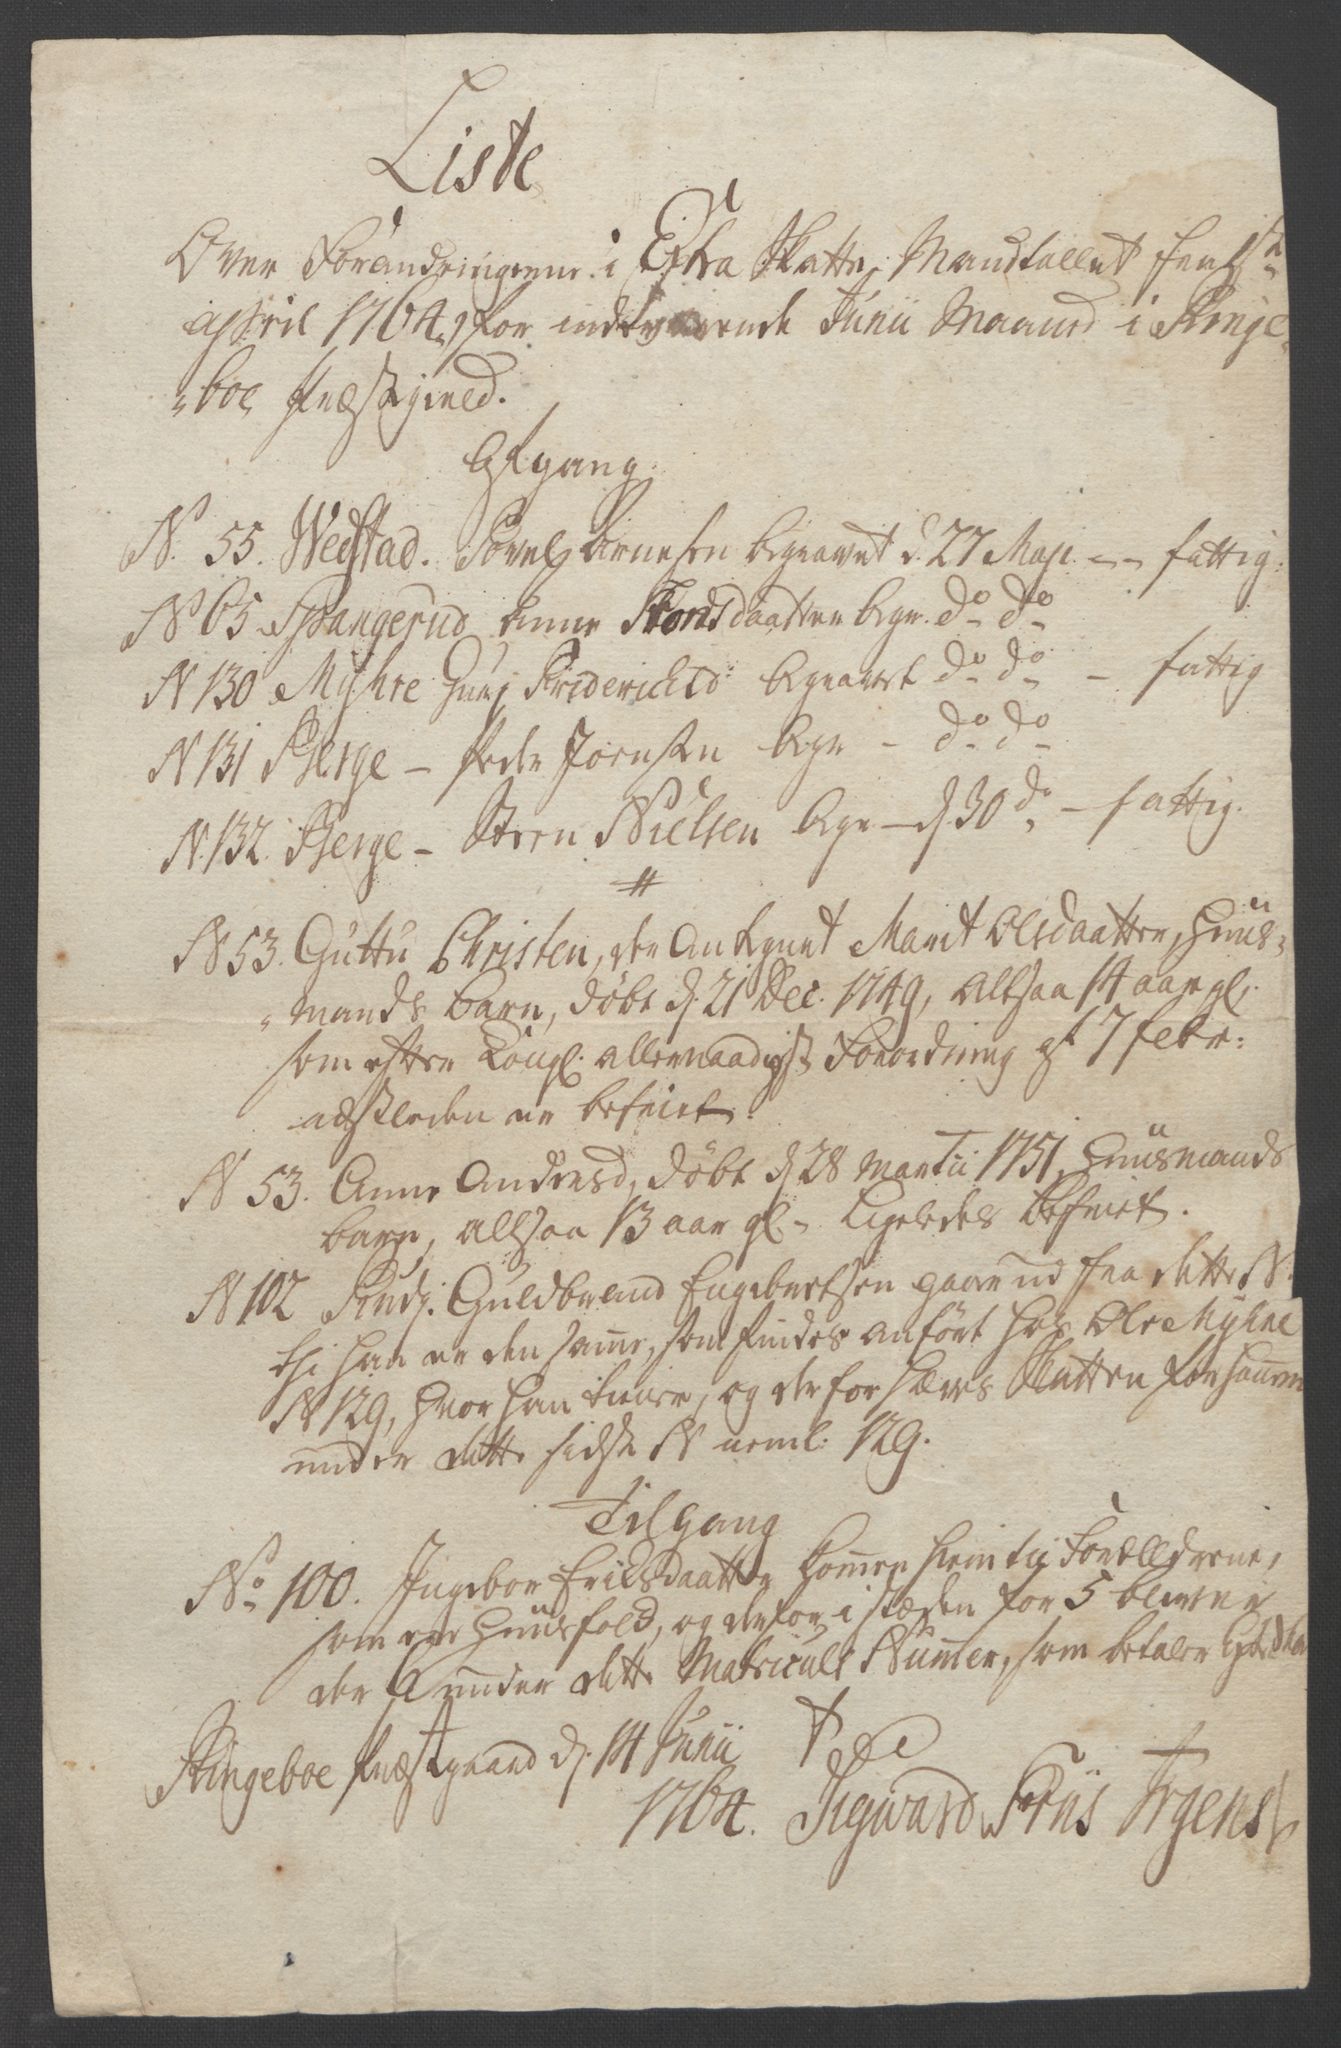 Liste
Over Forandringerne i Extra Skatte Mandtallet fra 1ste
April 1764, for indeværende Junii Maaned i Ringe-
"boe Præstegield.
Afgang
N. 55. Wedstad. Povel Arnesen begravet d. 27 Maji -- fattig.
N 65 Spangerud Anne Tordsdaatter begr. do do
N 130 Myhre Guri Friderichsd: begravet do do - fattig
N 131 Berge - Peder Joensen begr - do do
N. 132. Berge - Steen Nielsen begr - d. 30 do - fattig.
#
N 53. Guttu Christen, der Antegnet Marit Olsdaatter, Huus-
"mands barn, døbt d. 21 Dec. 1749, altsaa 14 aar gl.
som efter Kongl. allernaadigst Forordning af 7 Febr:
adskleden er befriet.
N 53. Anne Andersd, døbt d 28 Martii 1751, Huusmands
barn, altsaa 13 aar gl. - Ligeledes befriet.
N 102 Guldbrand Engebretsen gaar ud fra dette N.
thi han er den samme, som findes anført hos Ole Myhre
N 129, hvor han tiener, og derfor hæves Skatten for hannem
under dette sidste N neml: 129.
Tilgang
No 100. Ingebor Erichsdaatter kommen hiem til Forælldrene,
som er Huusfold, og derfor i stæden for 5 bliver
der 6 under dette Matriculs Nummer, som betaler
Ringeboe Præstgaard d. 14 Junii
1764. Sigvard Friis Irgens